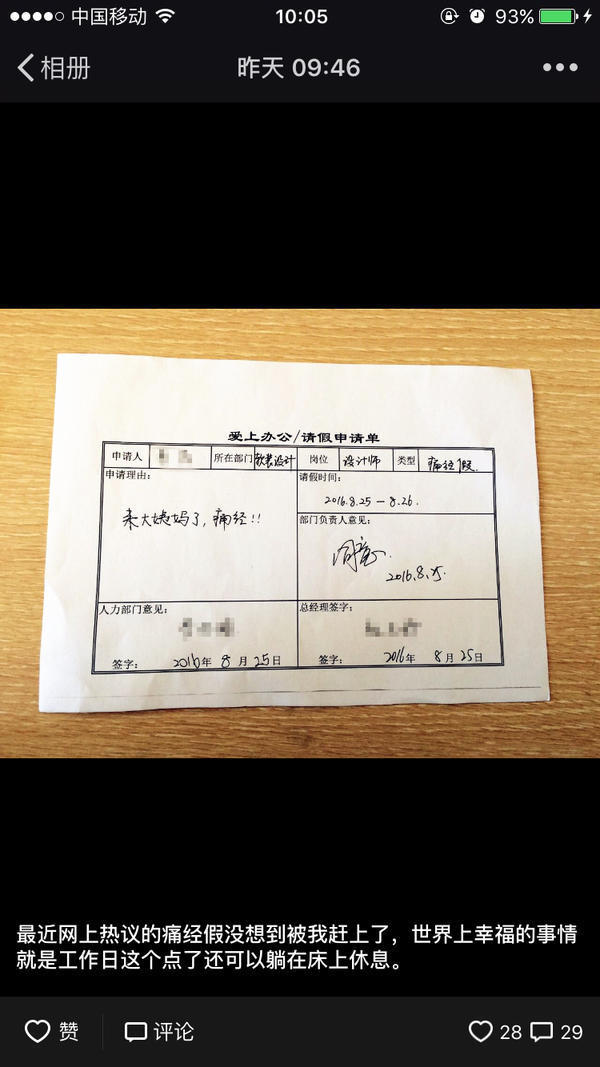 中国移动
10:05
93%
相册
昨天 09:46
爱上办公/请假申请单
申请人 所在部门 软装设计 岗位 设计师 类型 痛经假
申请理由：
来大姨妈了，痛经!!
请假时间：
2016.8.25 — 8.26.
部门负责人意见：
同意.
2016.8.25.
人力部门意见：
签字： 2016年 8月25日
总经理签字：
签字： 2016年 8月25日
最近网上热议的痛经假没想到被我赶上了，世界上幸福的事情
就是工作日这个点了还可以躺在床上休息。
赞 评论 28 29